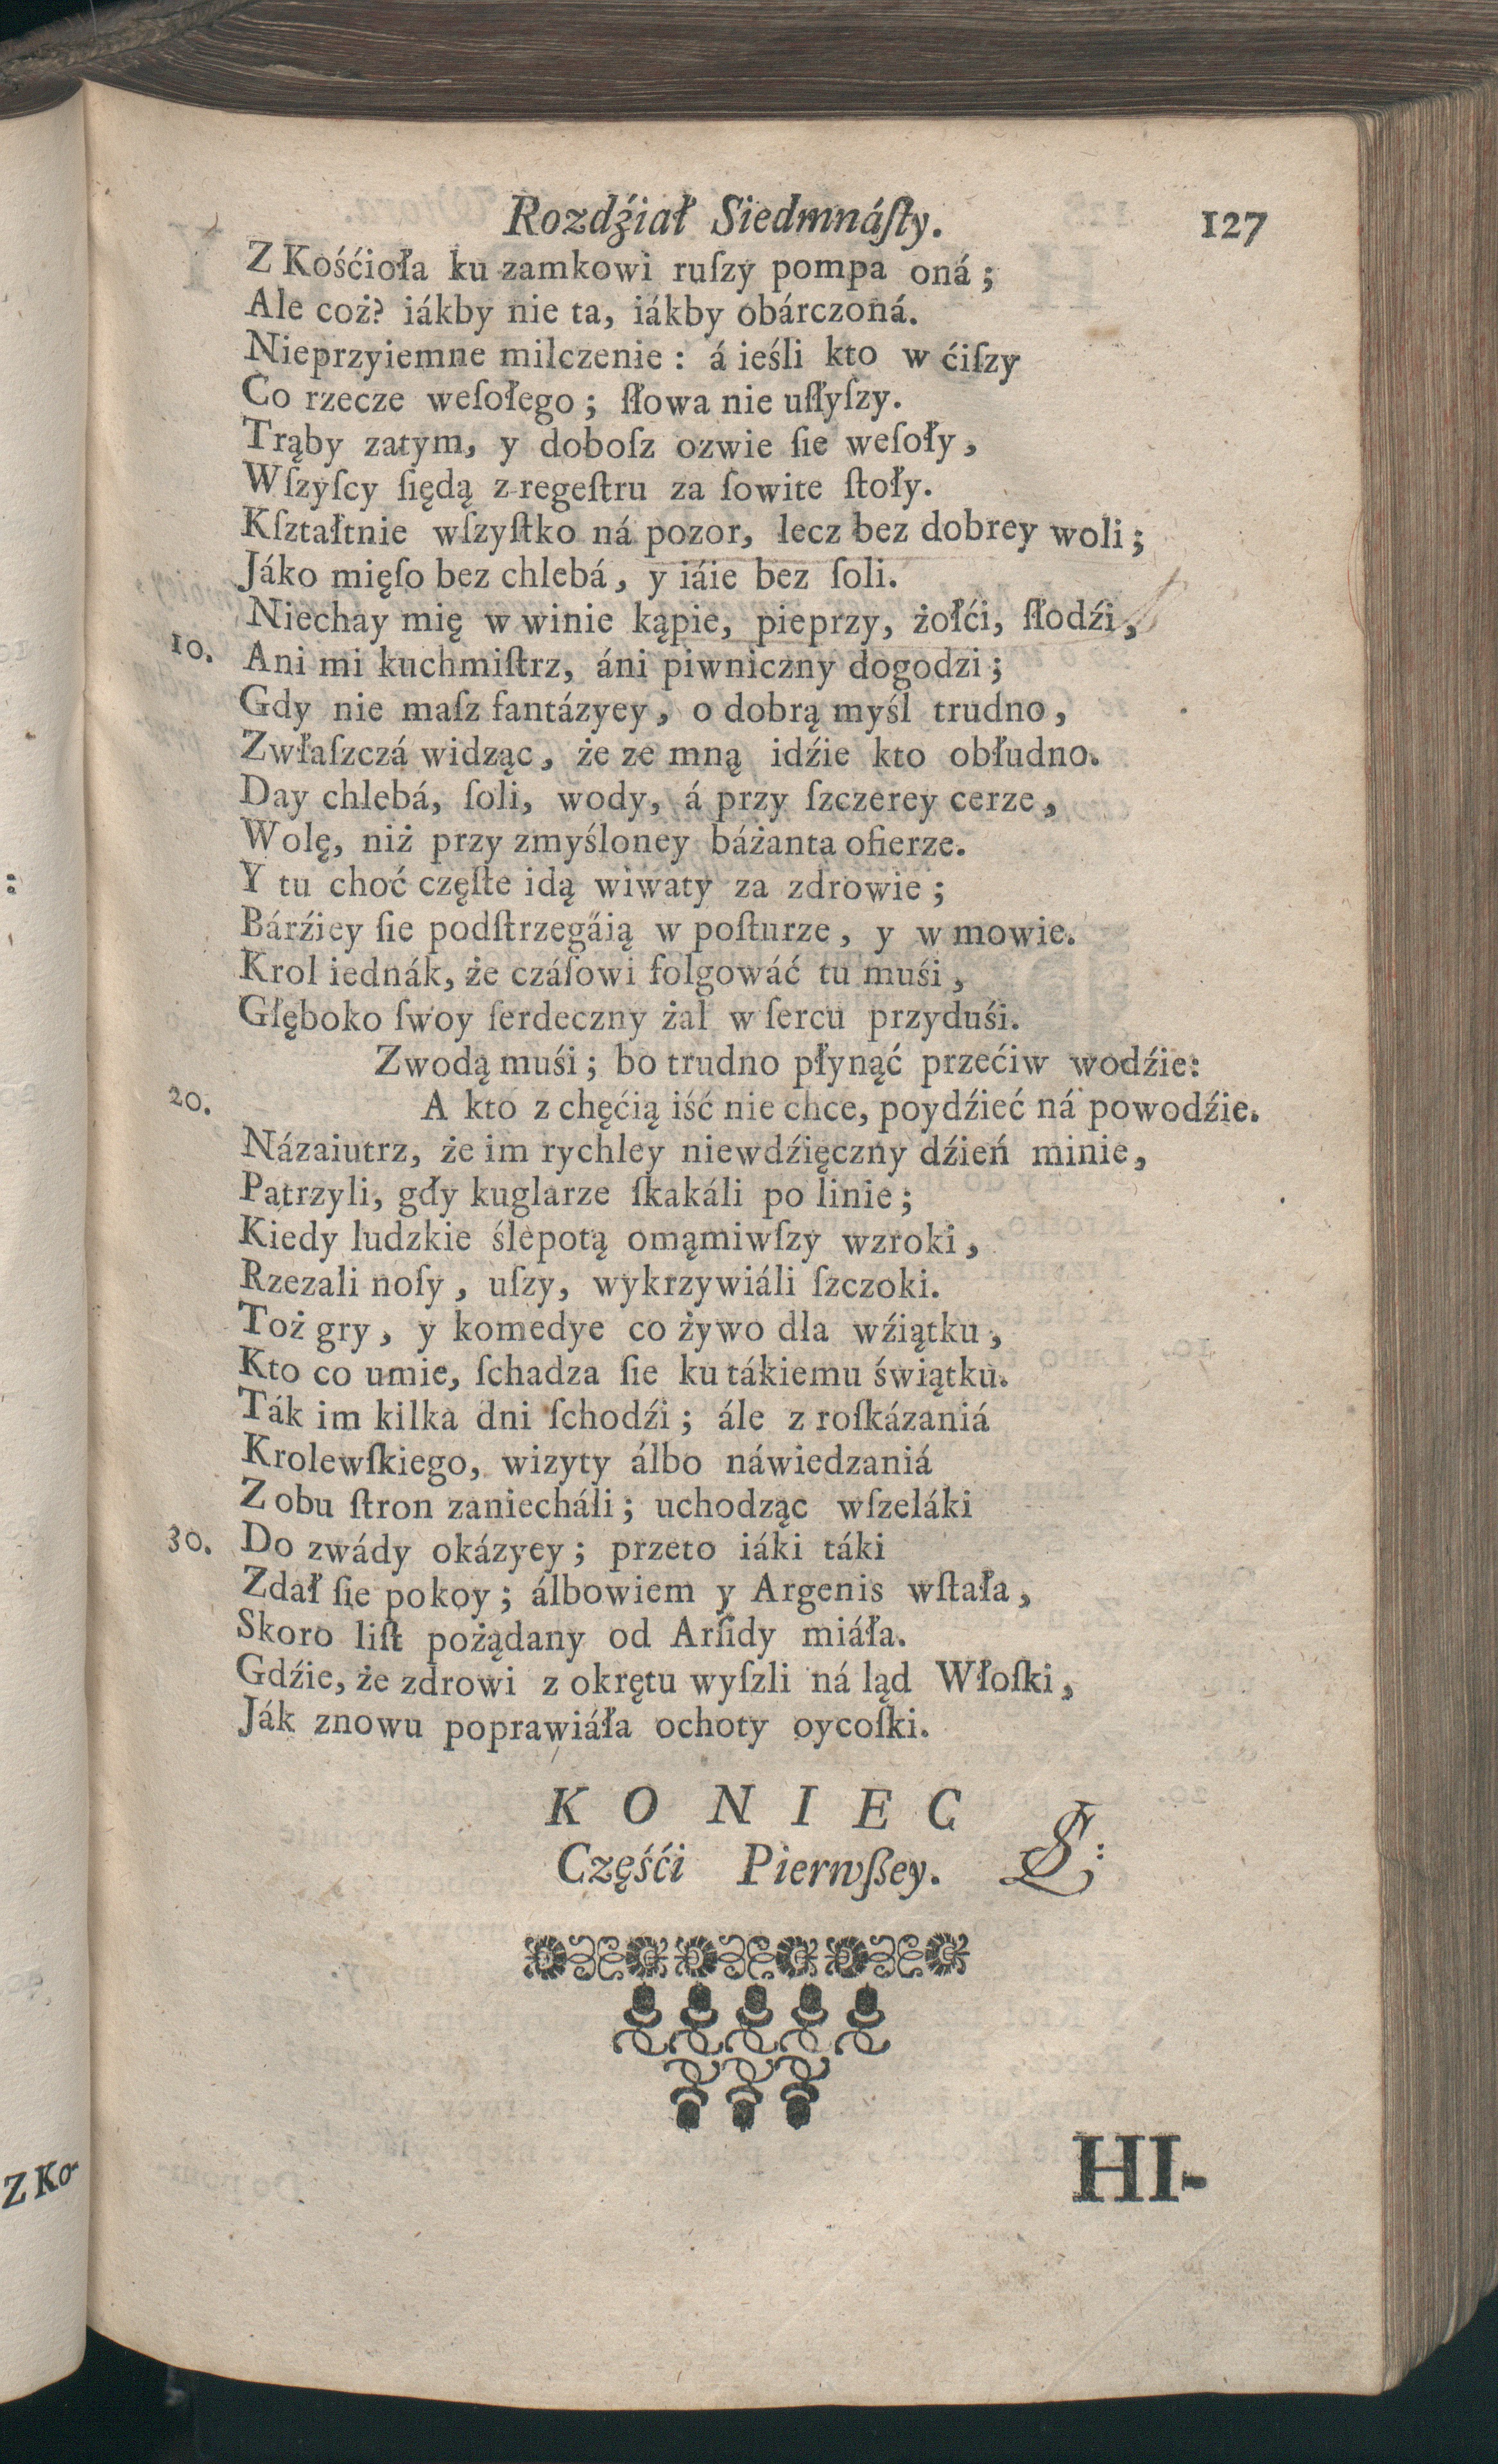 Rozdźiał Siedmnáſty. 127
Z Kośćioła ku zamkowi ruſzy pompa oná;
Ale coż? iákby nie ta, iákby obárczoná.
Nieprzyiemne milczenie: á ieśli kto w ćiſzy
Co rzecze weſołego; ſłowa nie uſłyſzy.
Trąby zatym, y doboſz ozwie ſie weſoły,
Wſzyſcy ſiędą z regeſtru za ſowite ſtoły.
Kſztałtnie wſzyſtko ná pozor, lecz bez dobrey woli;
Jáko mięſo bez chlebá, y iáie bez ſoli.
Niechay mię w winie kąpie, pieprzy, żołći, ſłodźi,
10. Ani mi kuchmiſtrz, áni piwniczny dogodzi;
Gdy nie maſz fantázyey, o dobrą myśl trudno,
Zwłaſzczá widząc, że ze mną idźie kto obłudno.
Day chlebá, ſoli, wody, á przy ſzczerey cerze,
Wolę, niż przy zmyśloney báżanta ofierze.
Y tu choć częſte idą wiwaty za zdrowie;
Bárźiey ſie podſtrzegáią w poſturze, y w mowie.
Krol iednák, że czáſowi folgowáć tu muśi,
Głęboko ſwoy ſerdeczny żal w ſercu przyduśi.
Zwodą muśi; bo trudno płynąć przećiw wodźie:
20. A kto z chęćią iść nie chce, poydźieć ná powodźie.
Názaiutrz, że im rychley niewdźięczny dźień minie,
Patrzyli, gdy kuglarze ſkakáli po linie;
Kiedy ludzkie ślepotą omąmiwſzy wzroki,
Rzezali noſy, uſzy, wykrzywiáli ſzczoki.
Toż gry, y komedye co żywo dla wźiątku,
Kto co umie, ſchadza ſie ku tákiemu świątku.
Ták im kilka dni ſchodźi; ále z roſkázaniá
Krolewſkiego, wizyty álbo náwiedzaniá
Z obu ſtron zaniecháli; uchodząc wſzeláki
30. Do zwády okázyey; przeto iáki táki
Zdał ſie pokoy; álbowiem y Argenis wſtała,
Skoro liſt pożądany od Arſidy miáła.
Gdźie, że zdrowi z okrętu wyſzli ná ląd Włoſki,
Ják znowu poprawiáła ochoty oycoſki.
K O N I E C
Częśći Pierwßey.
HI-
Z Ko-